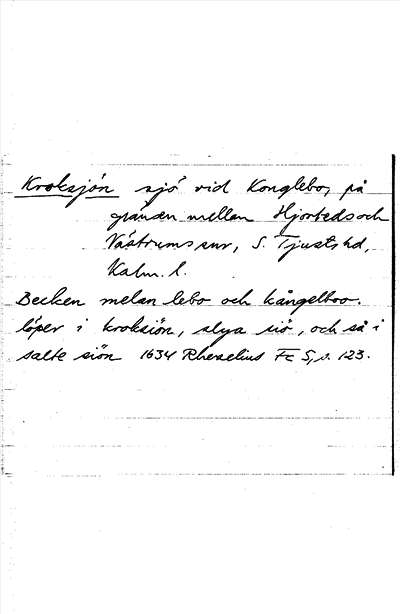 Kroksjön sjö vid Konglebo, på
gränsen mellan Hjorteds och
Västrums snr, S. Tjusts hd,
Kalm. l.
Becken melan lebo och kångelboo.
löper i kroksiön, slya siö, och så i
salte siön 1634 Rhezelius Fc 5, s. 123.